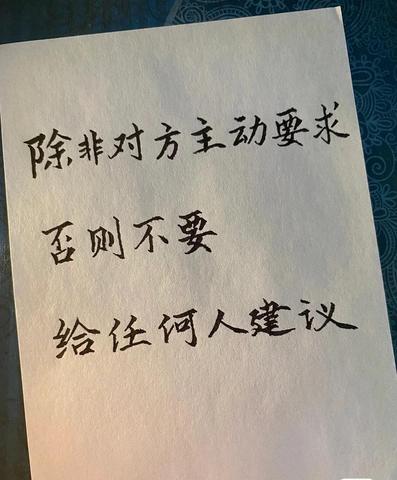 除非对方主动要求
否则不要
给任何人建议